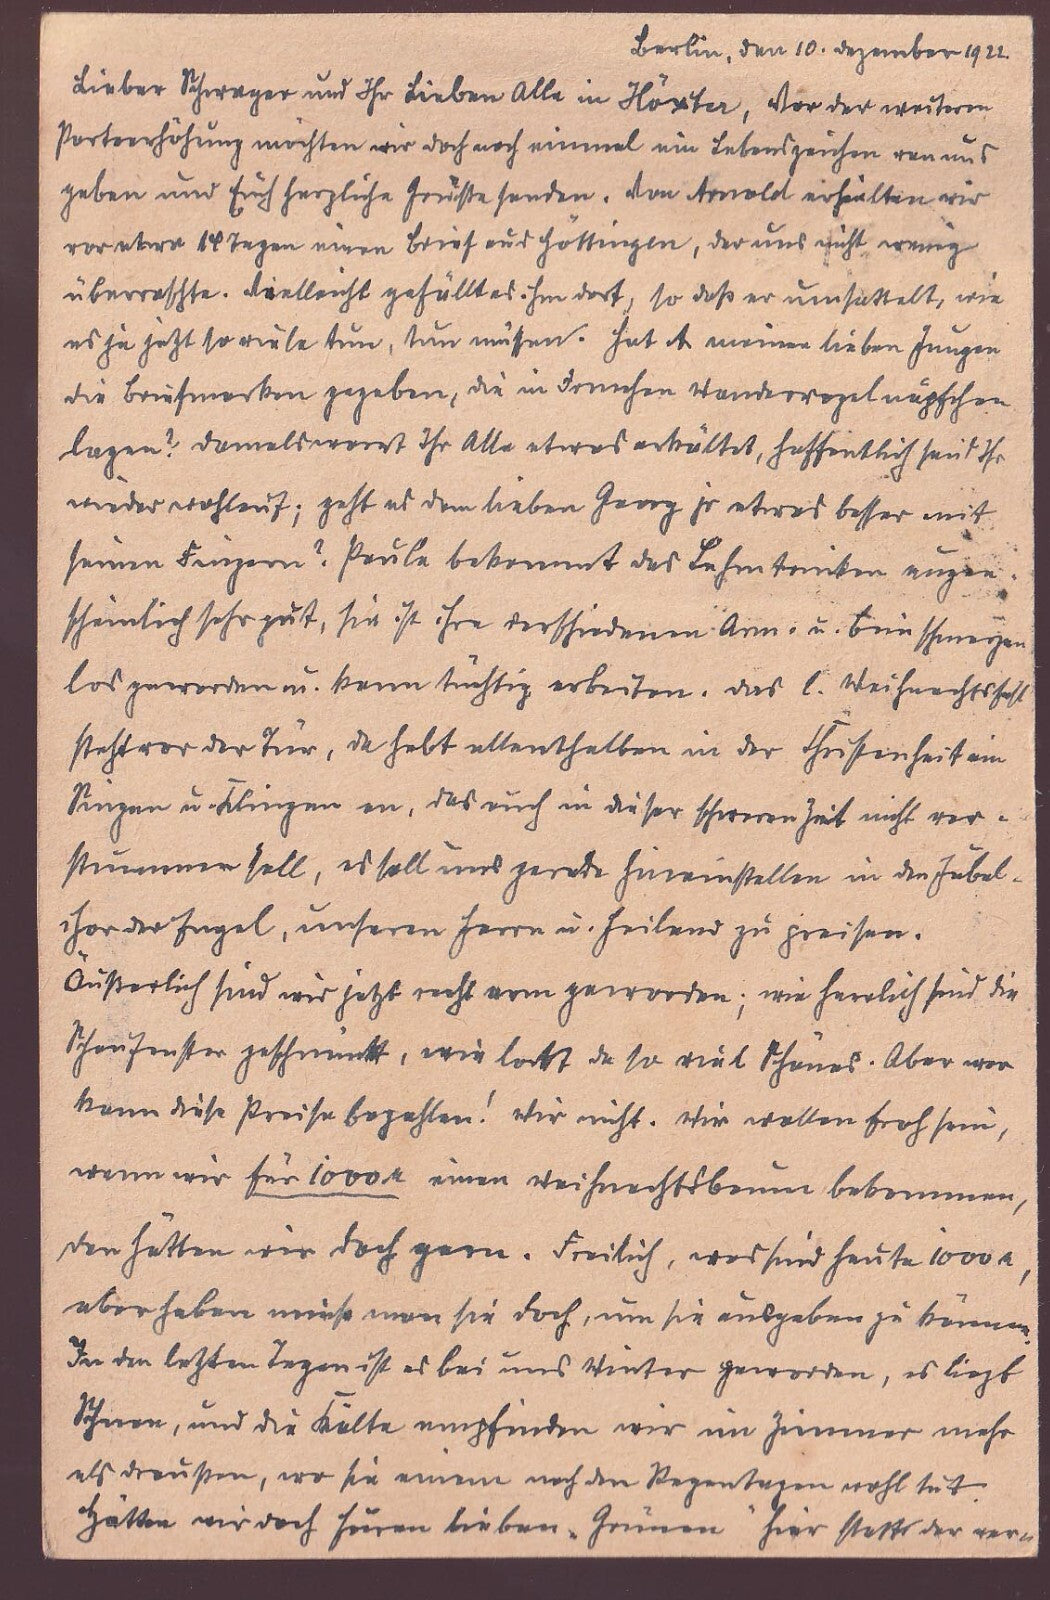 Berlin, den 10. Dezember 1922.
Lieber Schwager und Ihr Lieben Alle in Höxter, Vor der weiteren
Portoerhöhung möchten wir doch noch einmal ein Lebenszeichen von uns
geben und Euch herzliche Grüße senden. Von Arnold erhielten wir
vor etwa 14 Tagen einen Brief aus Göttingen, der uns nicht wenig
überraschte. Vielleicht gefällt es ihm dort, so daß er umsattelt, wie
es ja jetzt so viele tun, tun müssen. Hat A meinen lieben Jungen
die Briefmarken gegeben, die in Wandervogelnäpfchen
lagen? Damals wart Ihr Alle etwas erkältet, hoffentlich seid Ihr
wieder wohlauf; geht es dem lieben Georg jr etwas besser mit
seinen Fingern? Paula bekommt das Lehmtrinken augen-
scheinlich sehr gut, sie ist ihre verschiedenen Arm- u. Beinschmerzen
los geworden u. kann tüchtig arbeiten. Das l. Weihnachtsfest
steht vor der Tür, da hebt allenthalben in der Christenheit ein
Singen u. Klingen an, das auch in dieser schweren Zeit nicht ver-
stummen soll, es soll uns gerade hineinstellen in den Jubel-
chor der Engel, unseren Herrn u. Heiland zu preisen.
Äußerlich sind wir jetzt recht arm geworden; wie herrlich sind die
Schaufenster geschmückt, wie lockt da so viel Schönes. Aber wer
kann diese Preise bezahlen! Wir nicht. Wir wollen froh sein,
wenn wir für 1000 M einen Weihnachtsbaum bekommen,
den hätten wir doch gern. Freilich, was sind heute 1000 M,
aber haben muß man sie doch, um sie ausgeben zu können.
In den letzten Tagen ist es bei uns Winter geworden, es liegt
Schnee, und die Kälte empfinden wir im Zimmer mehr
als draußen, wo sie einem nach den Regentagen wohl tut.
Hätten wir doch lieben „Grünen" hier statt der ver-